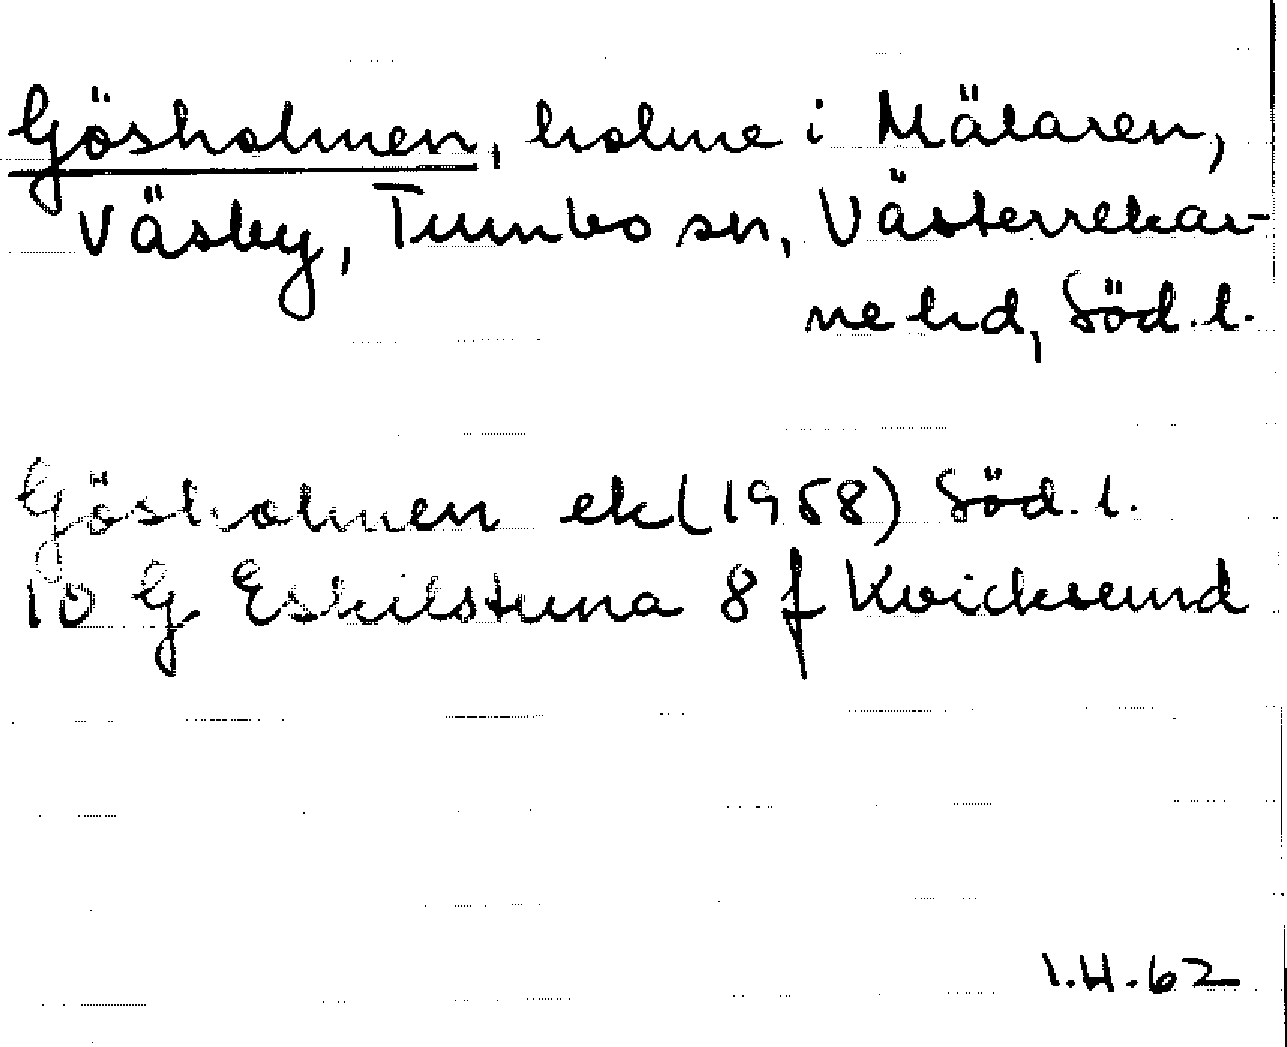 Gösholmen, holme i Mälaren,
Väsby, Tumbo sn, Västerrekar-
ne hd, Söd. l.
Gösholmen ek (1958) Söd. l.
10 G Eskilstuna 8 f Kvicksund
I.H.62